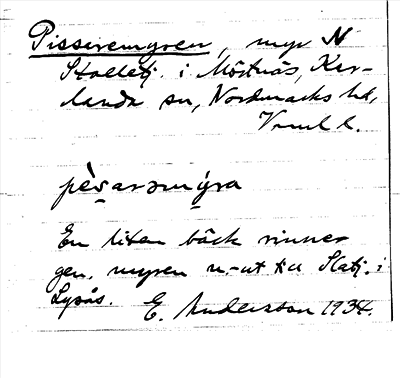 Pisseremyren, myr N
Stolletj. i Möstnäs, Kar-
landa sn, Nordmarks hd,
Vrml l.
pèsarəmýra
En liten bäck rinner
gen. myren n.-ut till Slatj. i
Lysås. E. Andersson 1934.